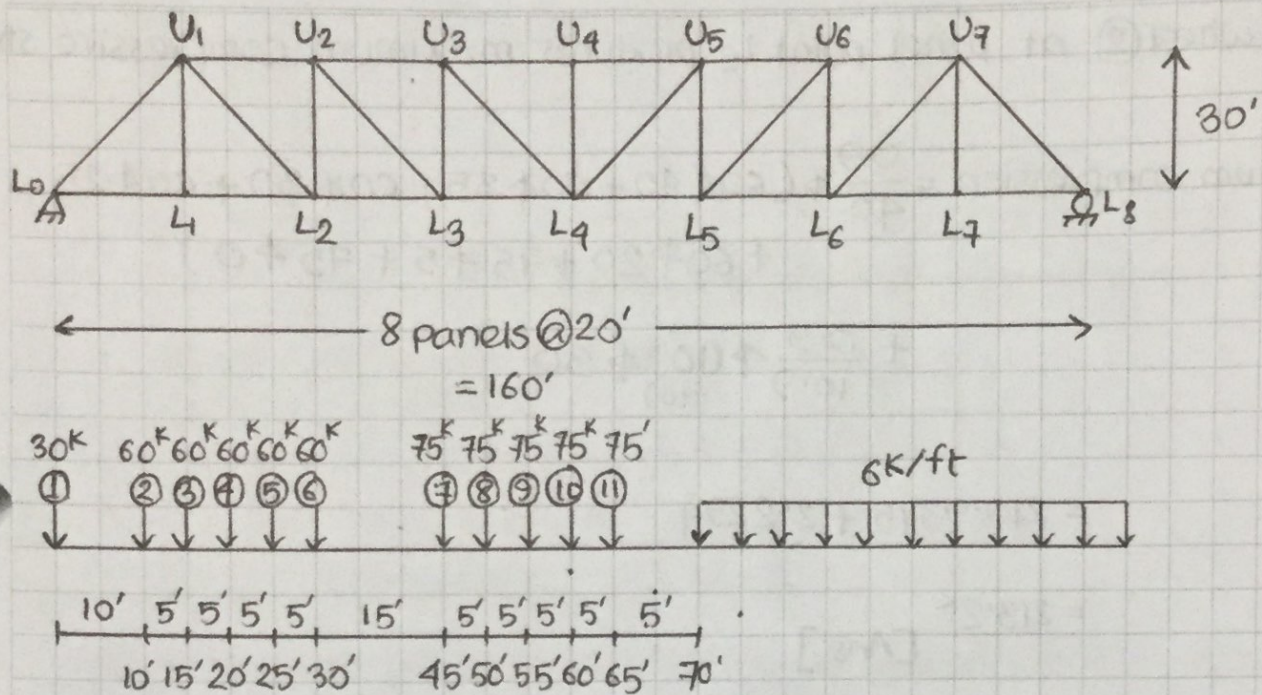 U1 U2 U3 U4 U5 U6 U7
30'
L0 L1 L2 L3 L4 L5 L6 L7 L8
8 panels @ 20'
= 160'
30K 60K 60K 60K 60K 60K 75K 75K 75K 75K 75'
① ② ③ ④ ⑤ ⑥ ⑦ ⑧ ⑨ ⑩ ⑪
6K/ft
10' 5' 5' 5' 5' 15' 5' 5' 5' 5' 5'
10' 15' 20' 25' 30' 45' 50' 55' 60' 65' 70'